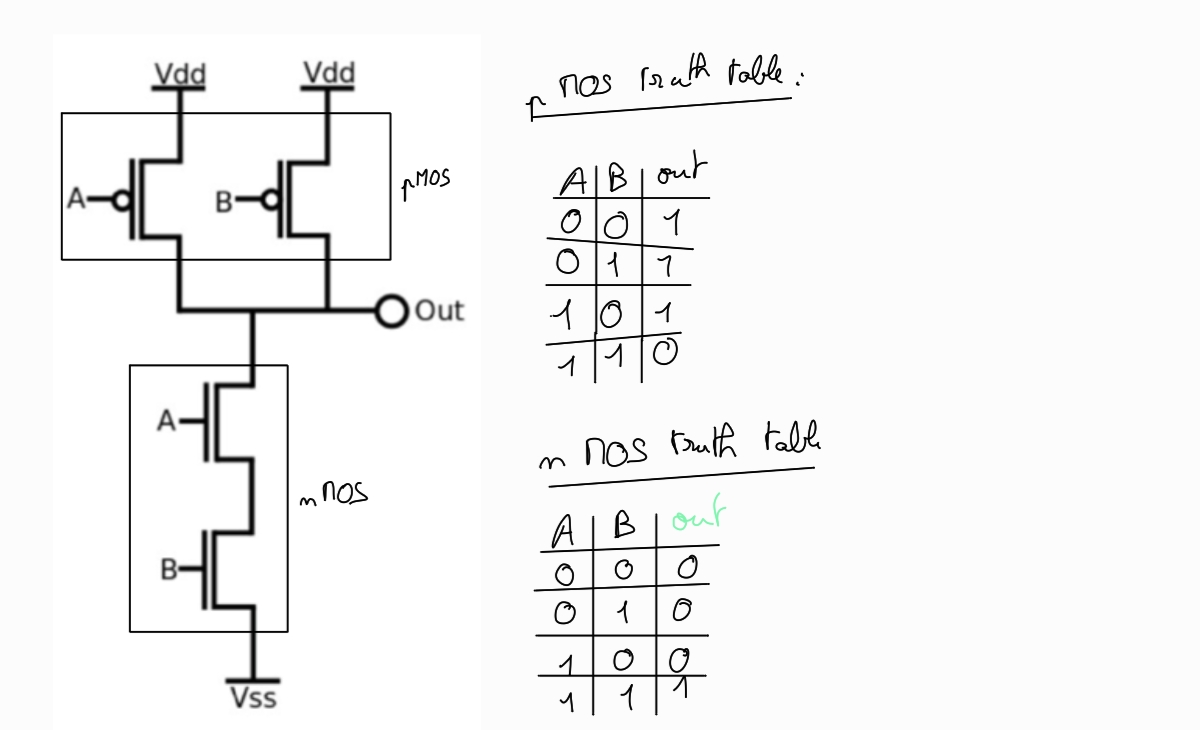 Vdd Vdd
A B pMOS
Out
A
nMOS
B
Vss
pMOS truth table:
A B out
0 0 1
0 1 1
1 0 1
1 1 0
nMOS truth table
A B out
0 0 0
0 1 0
1 0 0
1 1 1